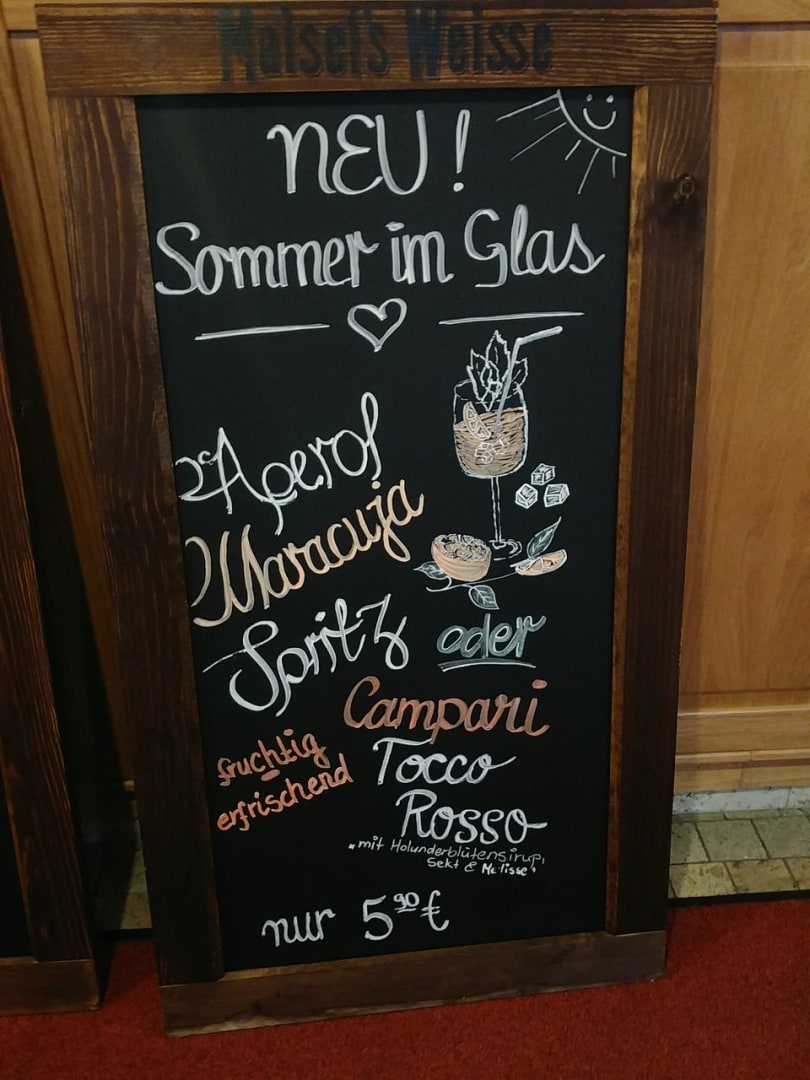 Maisel's Weisse
NEU!
Sommer im Glas
Aperol
Maracuja
Spritz oder
Campari
fruchtig Tocco
erfrischend Rosso
*mit Holunderblütensirup,
Sekt & Melisse*
nur 5 90 €